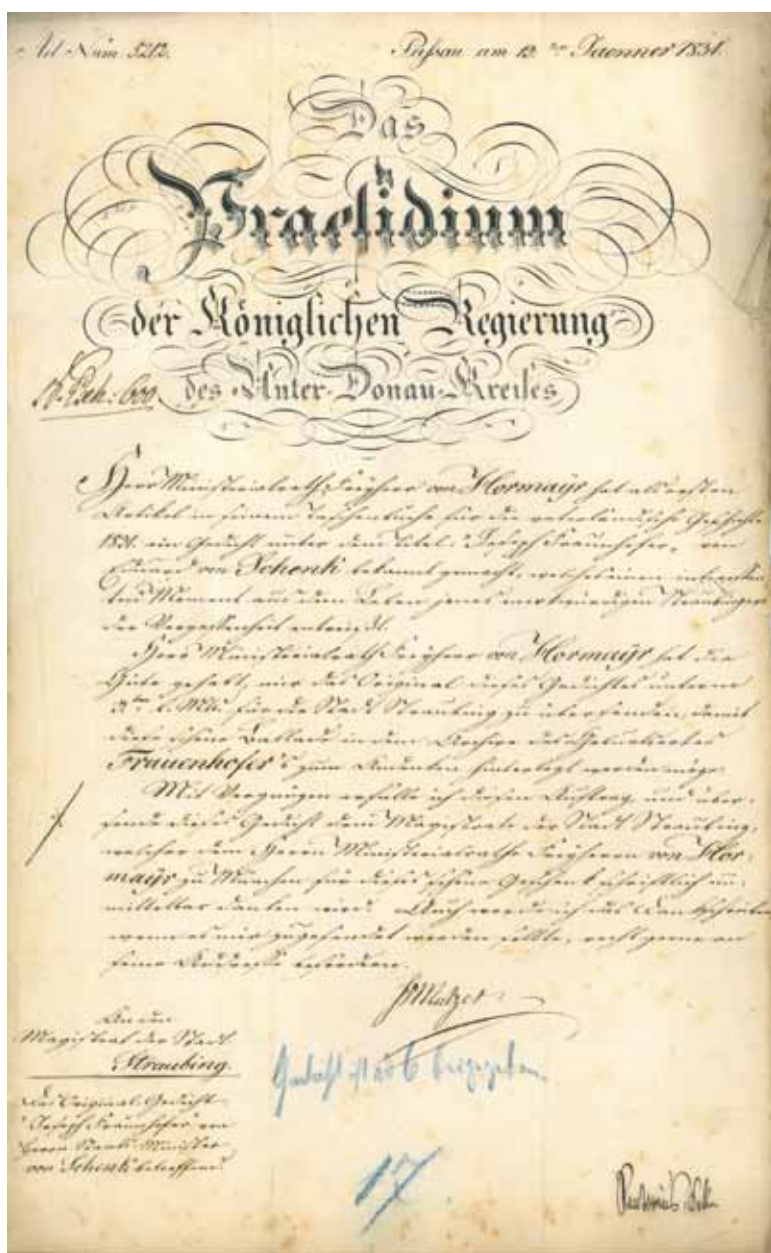 Ad Num. 5212. Passau am 12.ten Jaenner 1831.
Das
Praesidium
der Königlichen Regierung
des Unter-Donau-Kreises
Herr Ministerialrath Freyherr von Hormayr hat als ersten
Artikel in seinem Taschenbuche für die vaterländische Geschichte
1831. ein Gedicht unter dem Titel: "Joseph Fraunhofer" von
Eduard von Schenk bekannt gemacht, welches einen interessan-
ten Moment aus dem Leben jenes merkwürdigen Straubingers
der Vergessenheit entreißt.
Herr Ministerialrath Freyherr von Hormayr hat die
Güte gehabt, mir das Original dieses Gedichtes unterm
l. Mts. für die Stadt Straubing zu übersenden, damit
diese schöne Ballade in dem Archive des Geburtsortes
Frauenhofer's zum Andenken hinterlegt werden möge.
Mit Vergnügen erfülle ich diesen Auftrag, und über-
sende dieses Gedicht dem Magistrate der Stadt Straubing,
welcher dem Herrn Ministerialrathe Freyherrn von Hor-
mayr zu München für dieses schöne Geschenk schriftlich un-
mittelbar danken wird. Auch werde ich das Dankschreiben
wenn es mir zugesendet werden sollte, recht gerne an
seine Addresse befördern.
An den
Magistrat der Stadt
Straubing.
Das Original-Gedicht
"Joseph Fraunhofer" von
Herrn Staats-Minister
von Schenk betreffend.
Gedicht ist als 6 beigegeben.
17